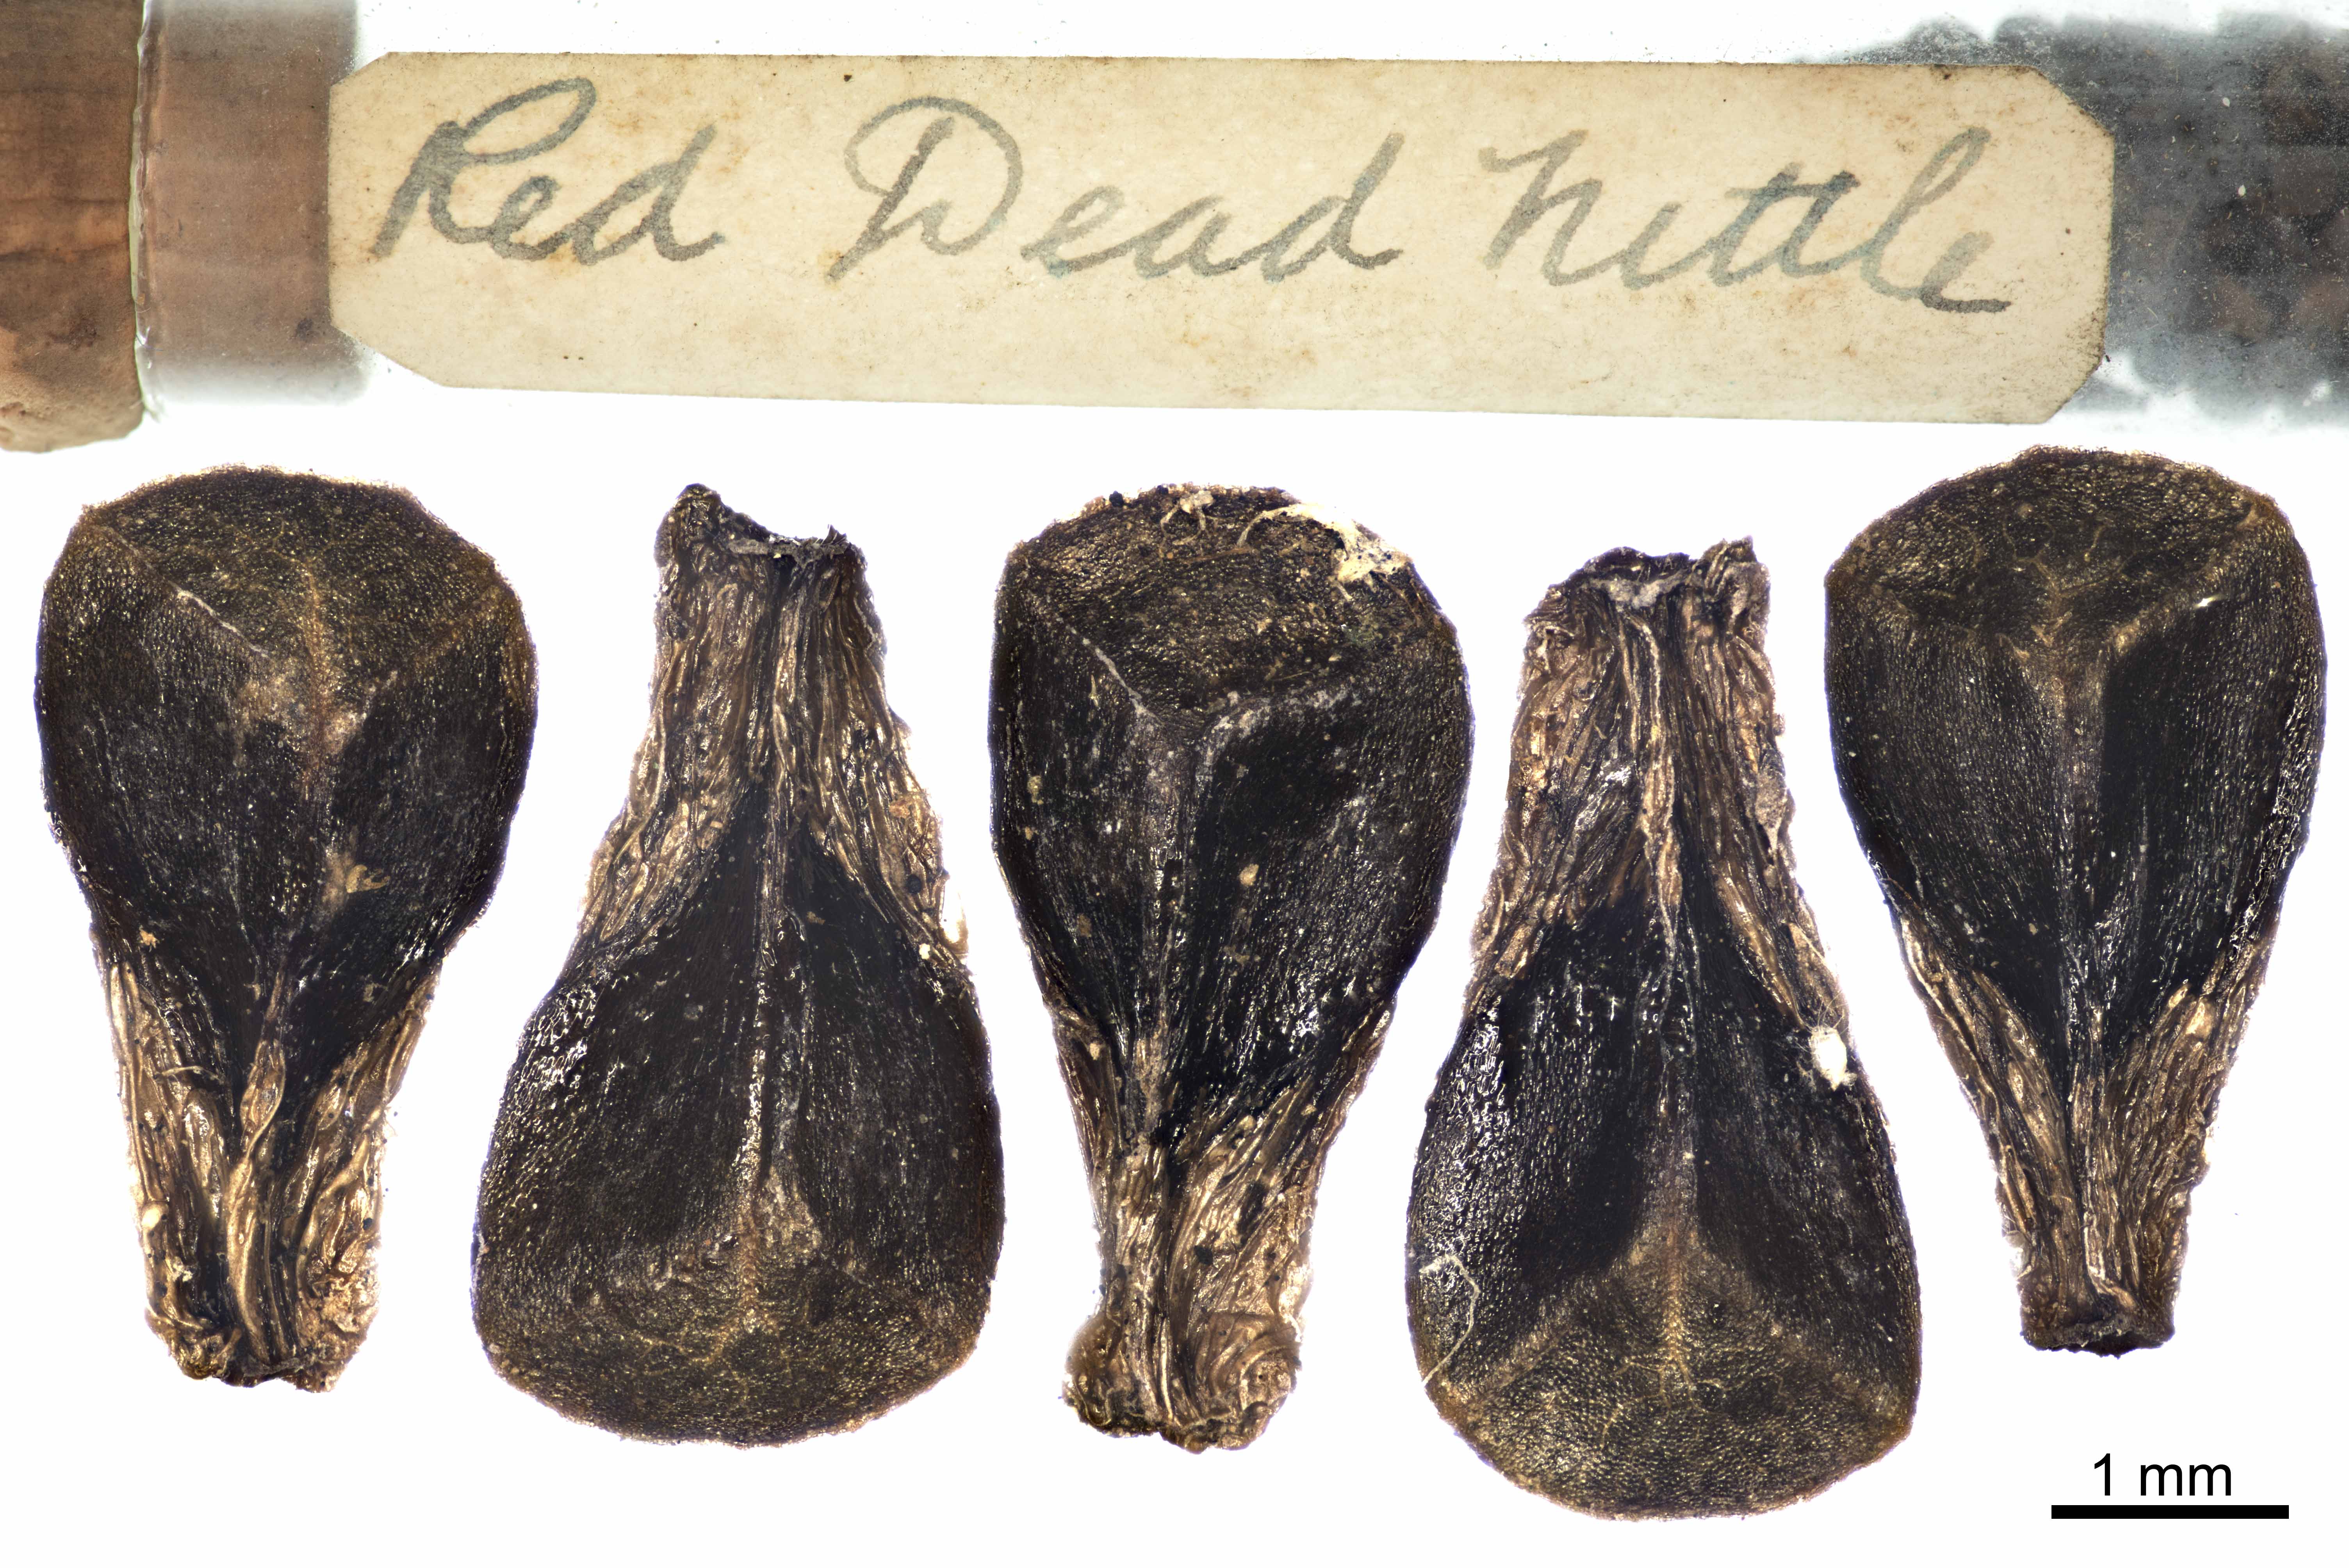 Red Dead Nettle
1 mm